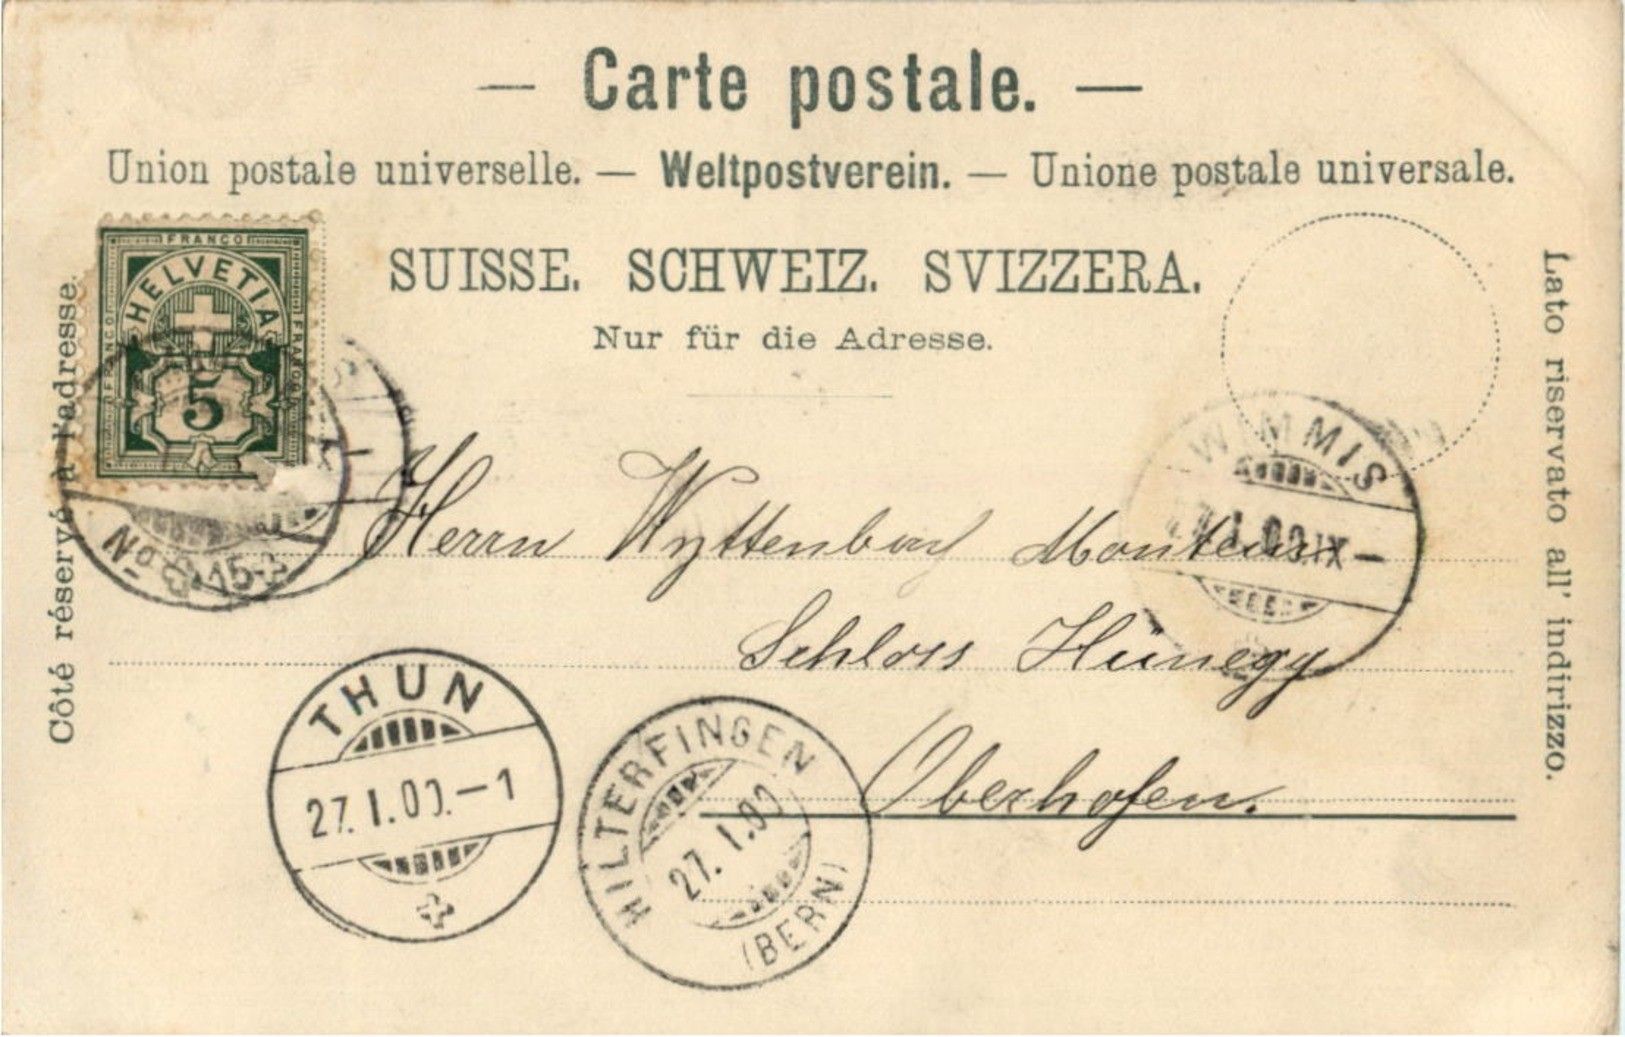 — Carte postale. —
Union postale universelle. — Weltpostverein. — Unione postale universale.
SUISSE. SCHWEIZ. SVIZZERA.
Nur für die Adresse.
Côté réservé à l'adresse.
Lato riservato all' indirizzo.
FRANCO
FRANCO
FRANCO
HELVETIA
5
No 15
WIMMIS
I.00.IX–
Herrn Wyttenbach Monteur
Schloss Hünegg
Oberhofen.
THUN
27.I.00.–1
HILTERFINGEN
27.I.00
(BERN)